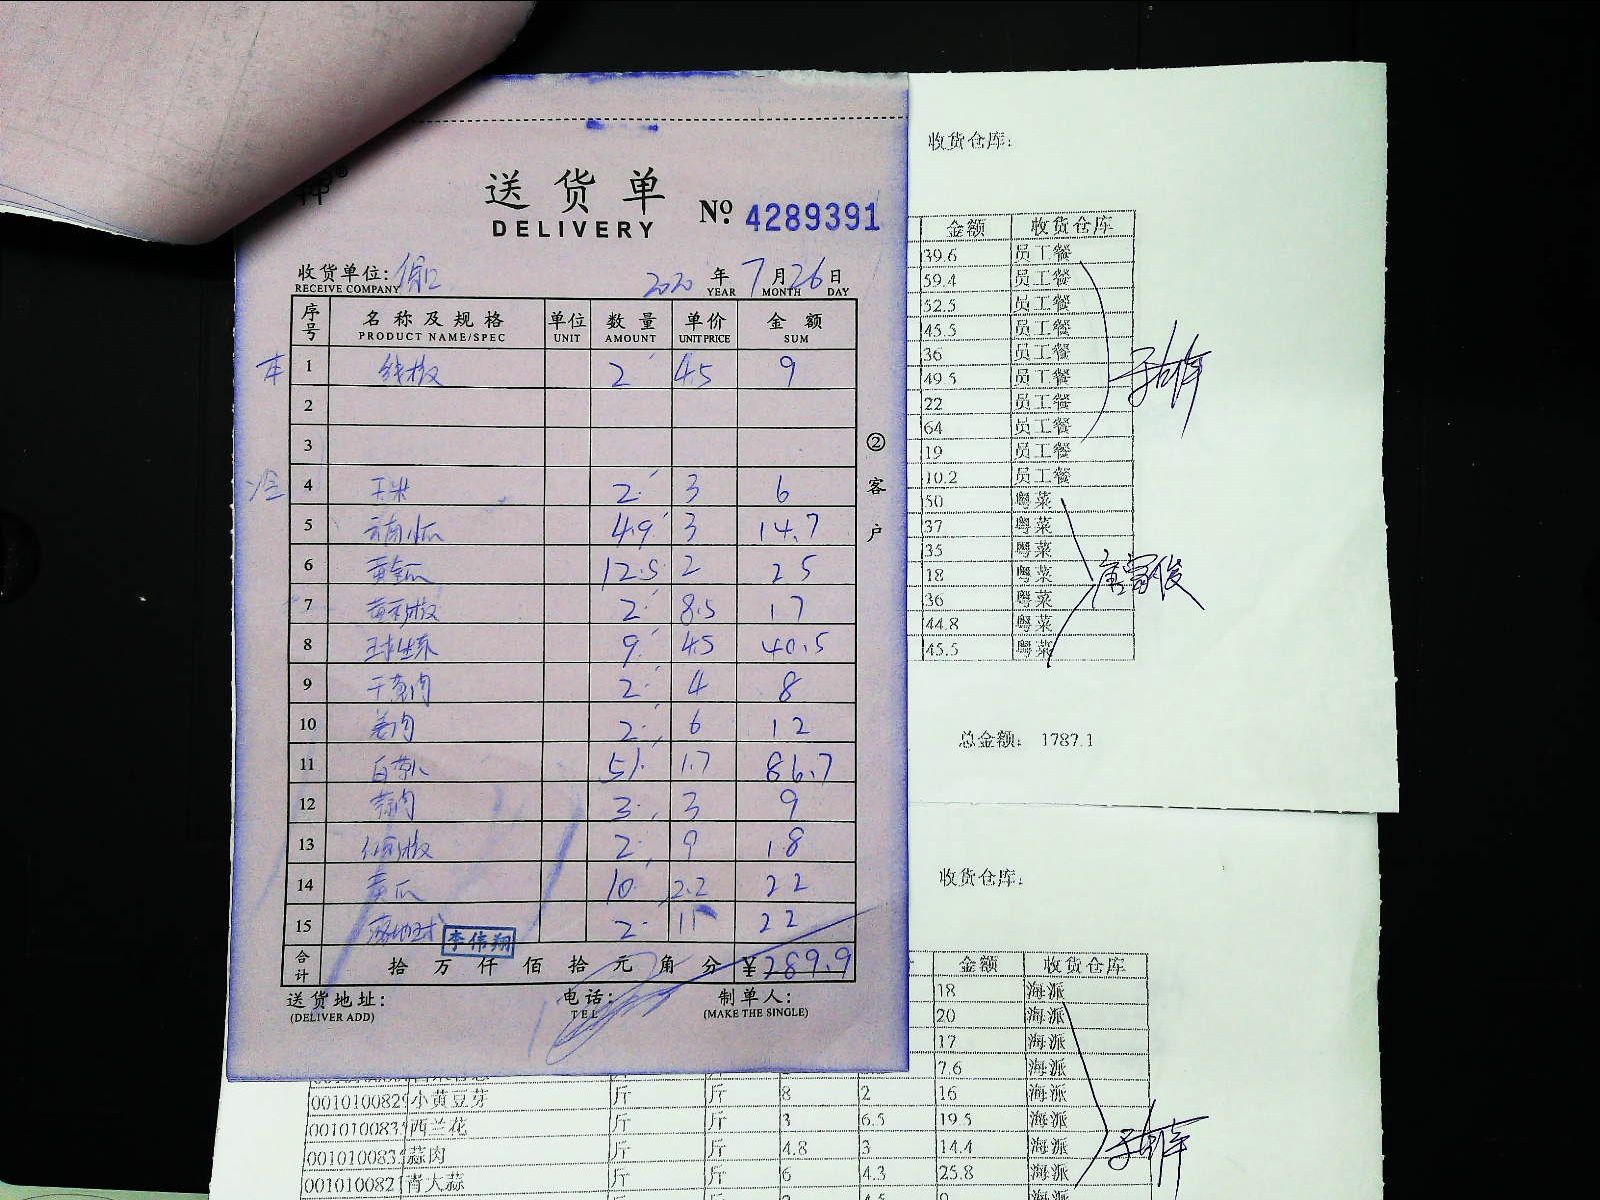 送货单
DELIVERY
No. 4289391
收货单位:
RECEIVE COMPANY
2020 年 7 月 26 日
YEAR MONTH DAY
序号 名称及规格 单位 数量 单价 金额
PRODUCT NAME/SPEC UNIT AMOUNT UNIT PRICE SUM
1 线椒 2 4.5 9
2
3
冷 4 玉米 2 3 6
5 云南小瓜 4.9 3 14.7
6 黄金瓜 12.5 2 25
7 黄彩椒 2 8.5 17
8 球生菜 9 4.5 40.5
9 干葱肉 2 4 8
10 姜肉 2 6 12
11 51 1.7 86.7
12 蒜肉 3 3 9
13 2 9 18
14 黄瓜 10 2.2 22
15 2 11 22
李伟翔
合计 拾万仟佰拾元角分 ¥289.9
送货地址:
(DELIVER ADD)
电话:
TEL
制单人:
(MAKE THE SINGLE)
②客户
收货仓库:
金额 收货仓库
39.6 员工餐
59.4 员工餐
52.5 员工餐
45.5 员工餐
36 员工餐
49.5 员工餐
22 员工餐
64 员工餐
19 员工餐
10.2 员工餐
50 粤菜
37 粤菜
35 粤菜
18 粤菜
36 粤菜
44.8 粤菜
45.5 粤菜
总金额: 1787.1
收货仓库:
金额 收货仓库
18 海派
20 海派
17 海派
7.6 海派
001010082 小黄豆芽 斤 斤 8 2 16 海派
001010083 西兰花 斤 斤 3 6.5 19.5 海派
001010083 蒜肉 斤 斤 4.8 3 14.4 海派
001010082 青大蒜 斤 斤 6 4.3 25.8 海派